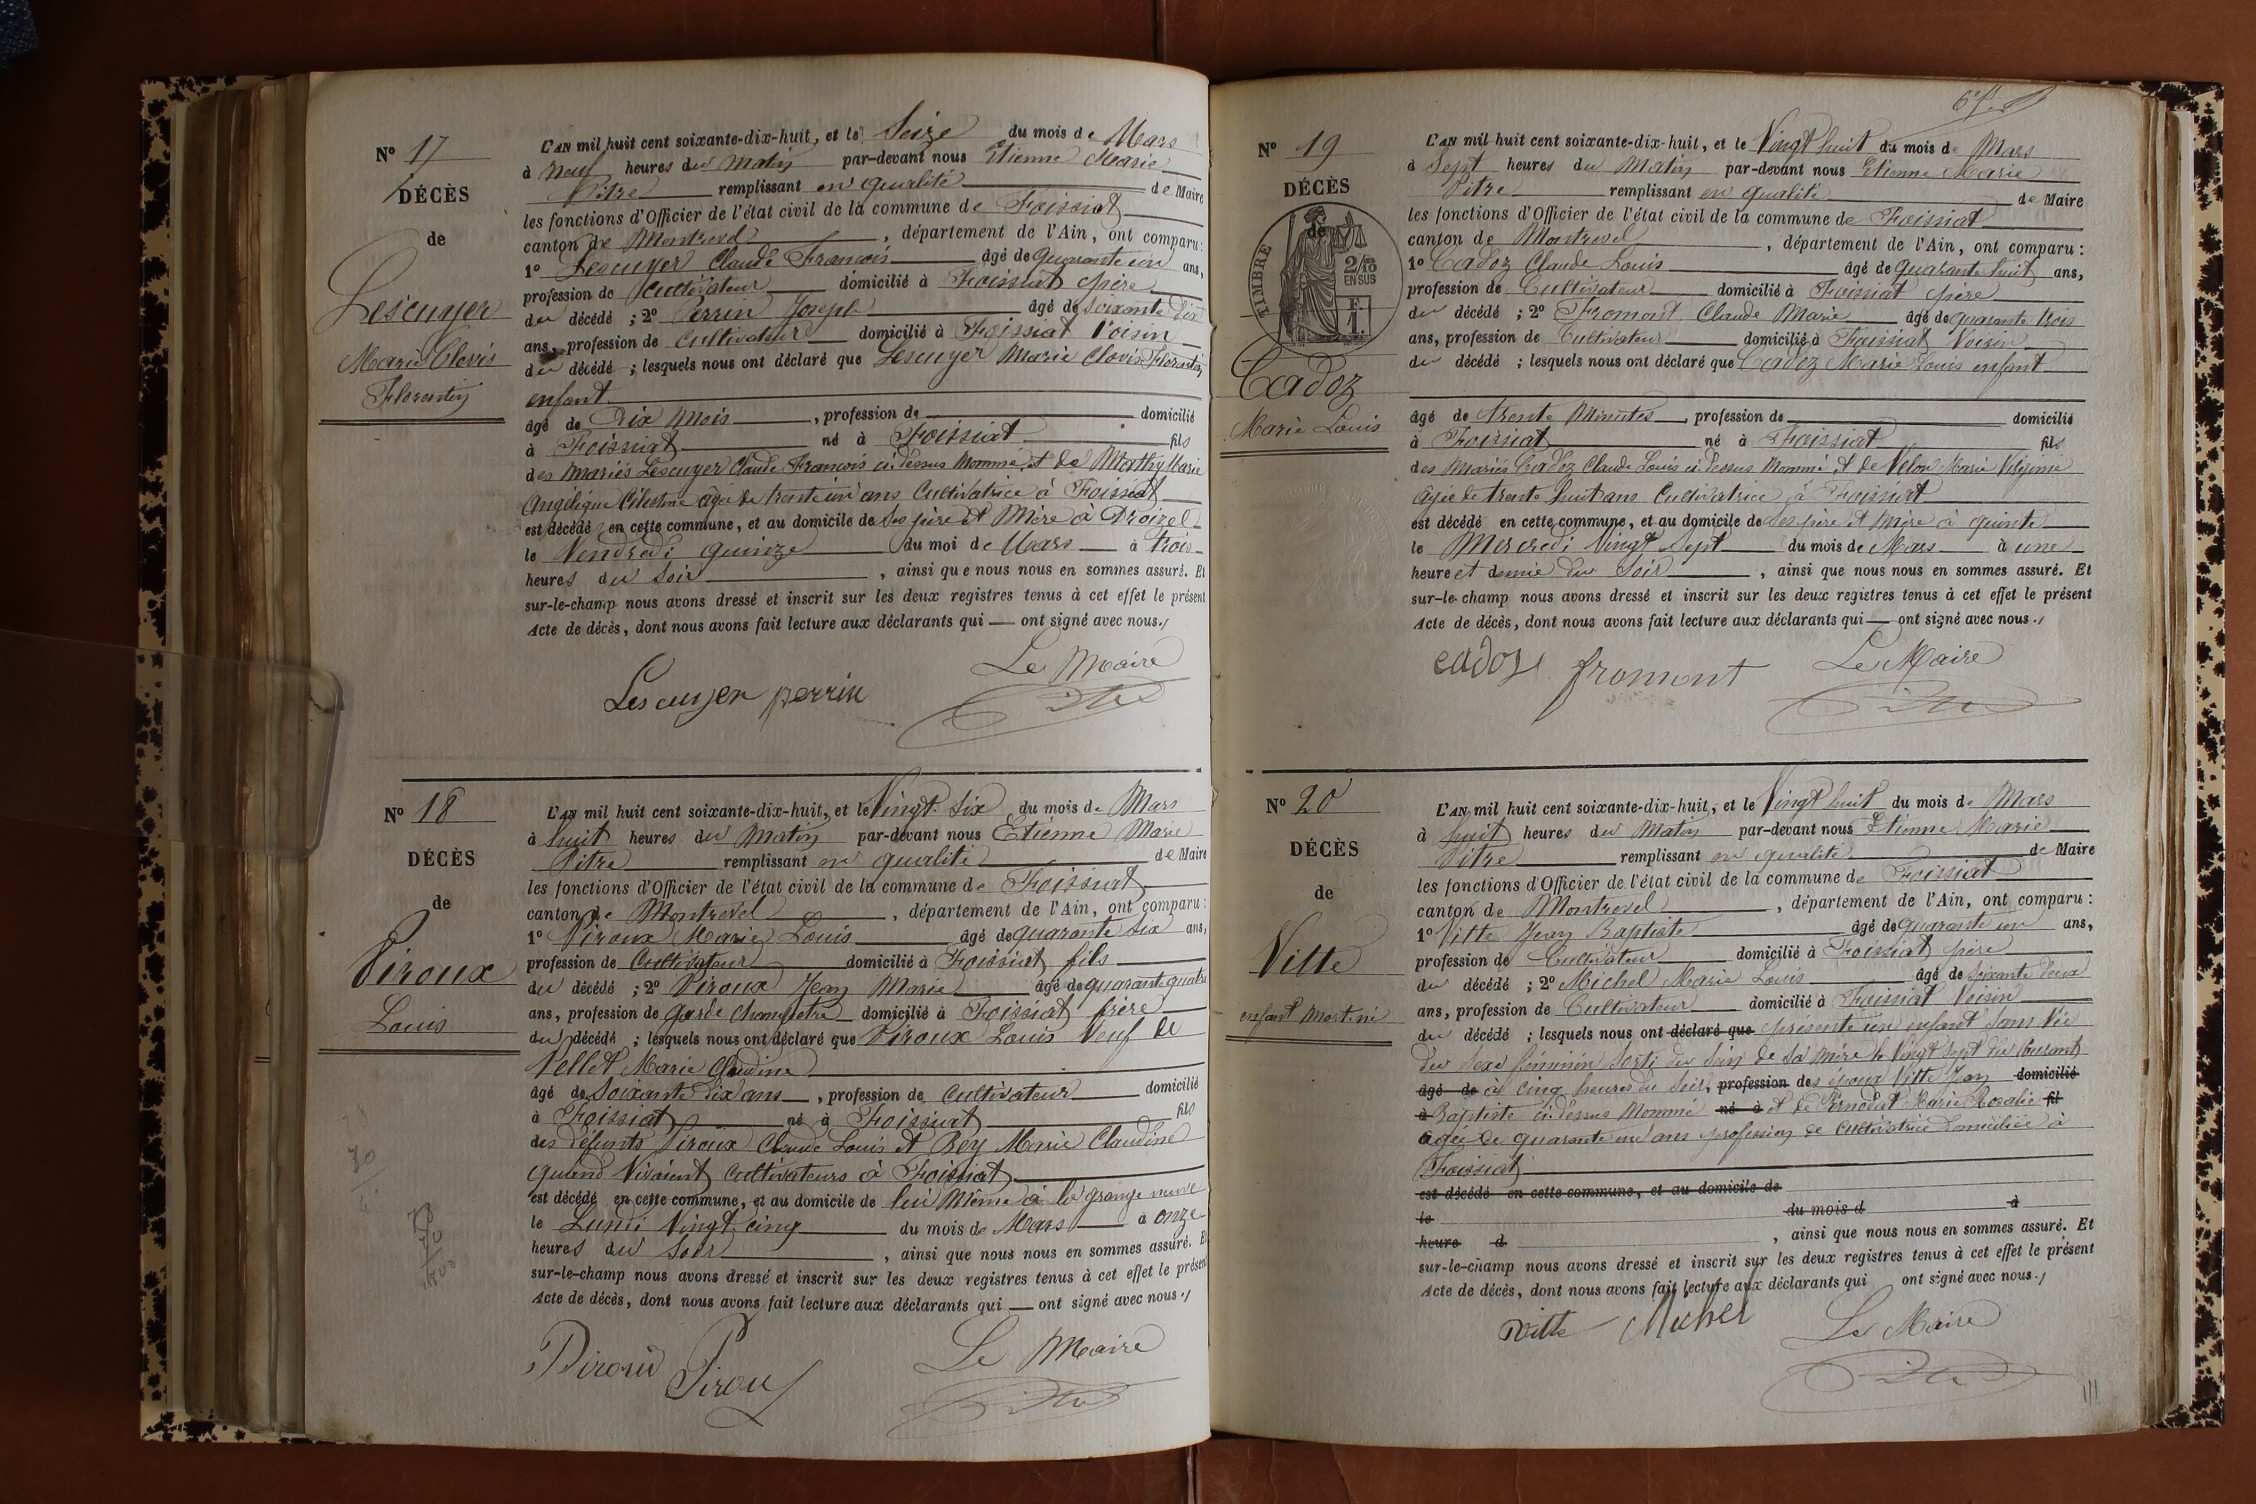 N° 17
DÉCÈS
de
Lescuyer
Marie Clovis
Florentin
L'AN mil huit cent soixante-dix-huit, et le Seize du mois de Mars
à neuf heures du Matin par-devant nous Etienne Marie
Pitre remplissant en qualité de Maire
les fonctions d'Officier de l'état civil de la commune de Foissiat
canton de Montrevel, département de l'Ain, ont comparu :
1° Lescuyer Claude François âgé de quarante un ans,
profession de Cultivateur domicilié à Foissiat père
du décédé ; 2° Perrin Joseph âgé de soixante dix
ans, profession de Cultivateur domicilié à Foissiat Voisin
du décédé ; lesquels nous ont déclaré que Lescuyer Marie Clovis Florentin
enfant
âgé de Dix Mois, profession de domicilié
à Foissiat né à Foissiat fils
des mariés Lescuyer Claude François ci dessus Nommé et de Marie
Angélique Célestine âgée de trente un ans Cultivatrice à Foissiat
est décédé en cette commune, et au domicile de ses père et Mère à
le Vendredi quinze du moi de Mars à trois
heures du soir, ainsi que nous nous en sommes assuré. Et
sur-le-champ nous avons dressé et inscrit sur les deux registres tenus à cet effet le présent
Acte de décès, dont nous avons fait lecture aux déclarants qui — ont signé avec nous./
Le Maire
Lescuyer perrin Pitre
N° 18
DÉCÈS
de
Piroux
Louis
L'AN mil huit cent soixante-dix-huit, et le Vingt Six du mois de Mars
à huit heures du Matin par-devant nous Etienne Marie
Pitre remplissant en qualité de Maire
les fonctions d'Officier de l'état civil de la commune de Foissiat
canton de Montrevel, département de l'Ain, ont comparu :
1° Piroux Marie Louis âgé de quarante six ans,
profession de Cultivateur domicilié à Foissiat fils
du décédé ; 2° Piroux Jean Marie âgé de quarante quatre
ans, profession de garde Champetre domicilié à Foissiat frère
du décédé ; lesquels nous ont déclaré que Piroux Louis Veuf de
Vellet Marie Claudine
âgé de Soixante Dix ans, profession de Cultivateur domicilié
à Foissiat né à Foissiat fils
des défunts Piroux Claude Louis et Rey Marie Claudine
quand Vivaient Cultivateurs à Foissiat
est décédé en cette commune, et au domicile de lui Même à la grange neuve
le Lundi Vingt cinq du mois de Mars à onze
heures du Soir, ainsi que nous nous en sommes assuré. Et
sur-le-champ nous avons dressé et inscrit sur les deux registres tenus à cet effet le présent
Acte de décès, dont nous avons fait lecture aux déclarants qui — ont signé avec nous./
Le Maire
Piroux Piroux Pitre
N° 19
DÉCÈS
de
TIMBRE
2/10
EN SUS
Cadoz
Marie Louis
L'AN mil huit cent soixante-dix-huit, et le Vingt huit du mois de Mars
à Sept heures du Matin par-devant nous Etienne Marie
Pitre remplissant en qualité de Maire
les fonctions d'Officier de l'état civil de la commune de Foissiat
canton de Montrevel, département de l'Ain, ont comparu :
1° Cadoz Claude Louis âgé de quarante huit ans,
profession de Cultivateur domicilié à Foissiat père
du décédé ; 2° Fromont Claude Marie âgé de quarante trois
ans, profession de Cultivateur domicilié à Foissiat Voisin
du décédé ; lesquels nous ont déclaré que Cadoz Marie Louis enfant
âgé de trente Minutes, profession de domicilié
à Foissiat né à Foissiat fils
des Mariés Cadoz Claude Louis ci dessus Nommé et de Velon Marie
âgée de trente huit ans Cultivatrice à Foissiat
est décédé en cette commune, et au domicile de ses père et Mère à quinte
le Mercredi Vingt Sept du mois de Mars à une
heure et demie du Soir, ainsi que nous nous en sommes assuré. Et
sur-le-champ nous avons dressé et inscrit sur les deux registres tenus à cet effet le présent
Acte de décès, dont nous avons fait lecture aux déclarants qui — ont signé avec nous./
Le Maire
cadoz fromont Pitre
N° 20
DÉCÈS
de
Vitte
enfant Mort né
L'AN mil huit cent soixante-dix-huit, et le Vingt huit du mois de Mars
à huit heures du Matin par-devant nous Etienne Marie
Pitre remplissant en qualité de Maire
les fonctions d'Officier de l'état civil de la commune de Foissiat
canton de Montrevel, département de l'Ain, ont comparu :
1° Vitte Jean Baptiste âgé de quarante un ans,
profession de Cultivateur domicilié à Foissiat père
du décédé ; 2° Michel Marie Louis âgé de soixante deux
ans, profession de Cultivateur domicilié à Foissiat Voisin
du décédé ; lesquels nous ont déclaré que présenté un enfant sans Vie
du Sexe féminin Sorti du Sein de Sa Mère le Vingt Sept du Courant
âgé de à cinq heures du Soir, profession des époux Vitte Jean domicilié
à Baptiste ci dessus Nommé né à et de Pernodat Marie Rosalie fil
agée de quarante un ans profession de Cultivatrice domiciliée à
Foissiat
est décédé en cette commune, et au domicile de
le du mois d à
heure d, ainsi que nous nous en sommes assuré. Et
sur-le-champ nous avons dressé et inscrit sur les deux registres tenus à cet effet le présent
Acte de décès, dont nous avons fait lecture aux déclarants qui ont signé avec nous./
Vitte Michel Le Maire
Pitre